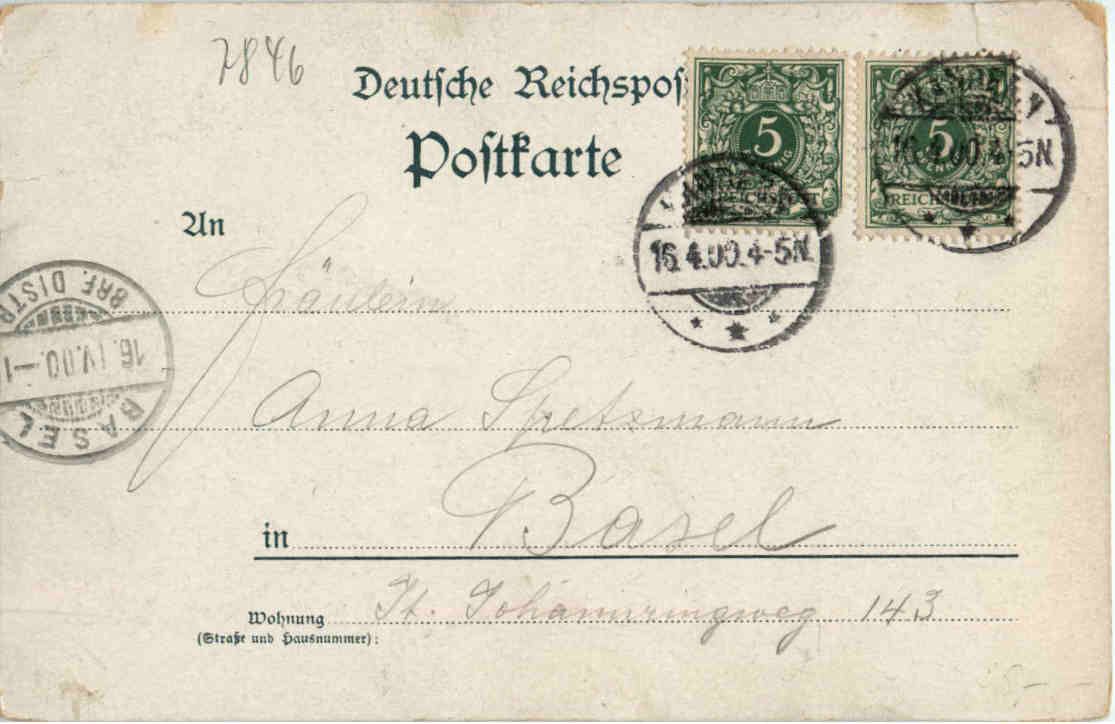 7846
Deutsche Reichspost
Postkarte
5
REICHSPOST
5
REICHSPOST
16.4.00.4-5N
16.4.00.4-5N
An
Fräulein
BRF. DISTR.
16.IV.00.-1
BASEL
Anna Spetsmann
in Basel
Wohnung
(Straße und Hausnummer):
St. Johannringweg 143